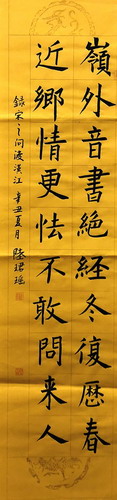 嶺外音書絶経冬復歷春
近鄉情更怯不敢問来人
錄宋之问渡漢江 辛丑夏月 陸珺瑶